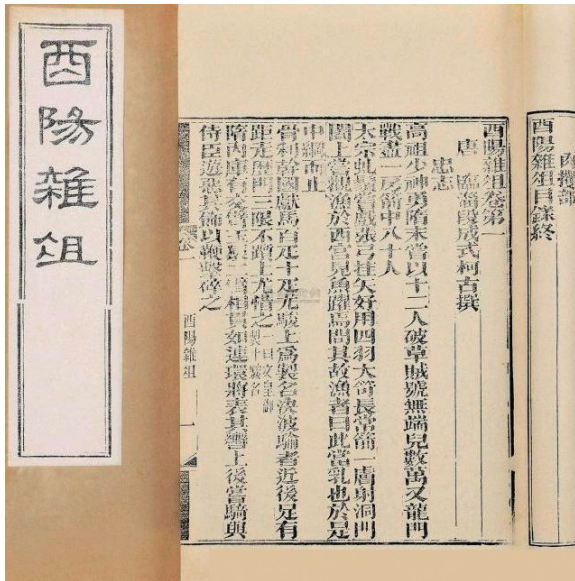 酉陽雜俎
肉攫部
酉陽雜俎目錄終
酉陽雜俎卷第一
唐 臨淄段成式柯古撰
忠志
高祖少神勇隋末嘗以十二人破草賊號無端兒數萬又龍門
戰盡一房箭中八十人
太宗虬鬚嘗戲張弓挂矢好用四羽大笴長常箭一膚射洞門
闔上嘗觀漁於西宮見魚躍焉問其故漁者曰此當乳也於是
中網而止
骨利幹國獻馬百疋十疋尤駿上爲製名決波騟者近後足有
距走歷門三限不躓上尤惜之 一曰文皇御製十驥名
隋內庫有交臂玉猨二臂相貫如連環將表其轡上後嘗騎與
侍臣遊惡其飾以鞭擊碎之
酉陽雜俎
一